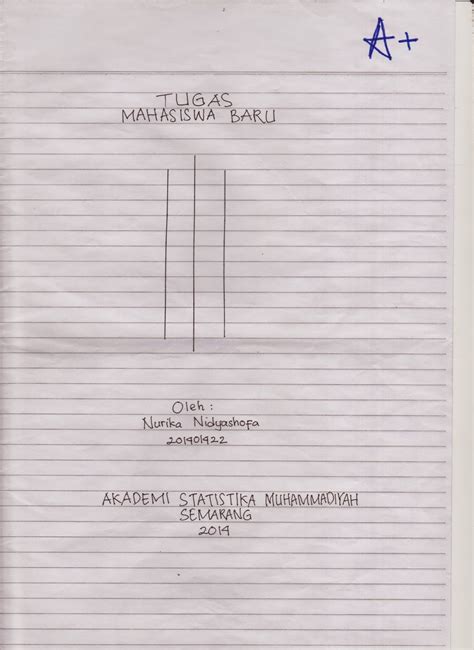 A+
TUGAS
MAHASISWA BARU
Oleh :
Nurika Nidyashofa
201401422
AKADEMI STATISTIKA MUHAMMADIYAH
SEMARANG
2014